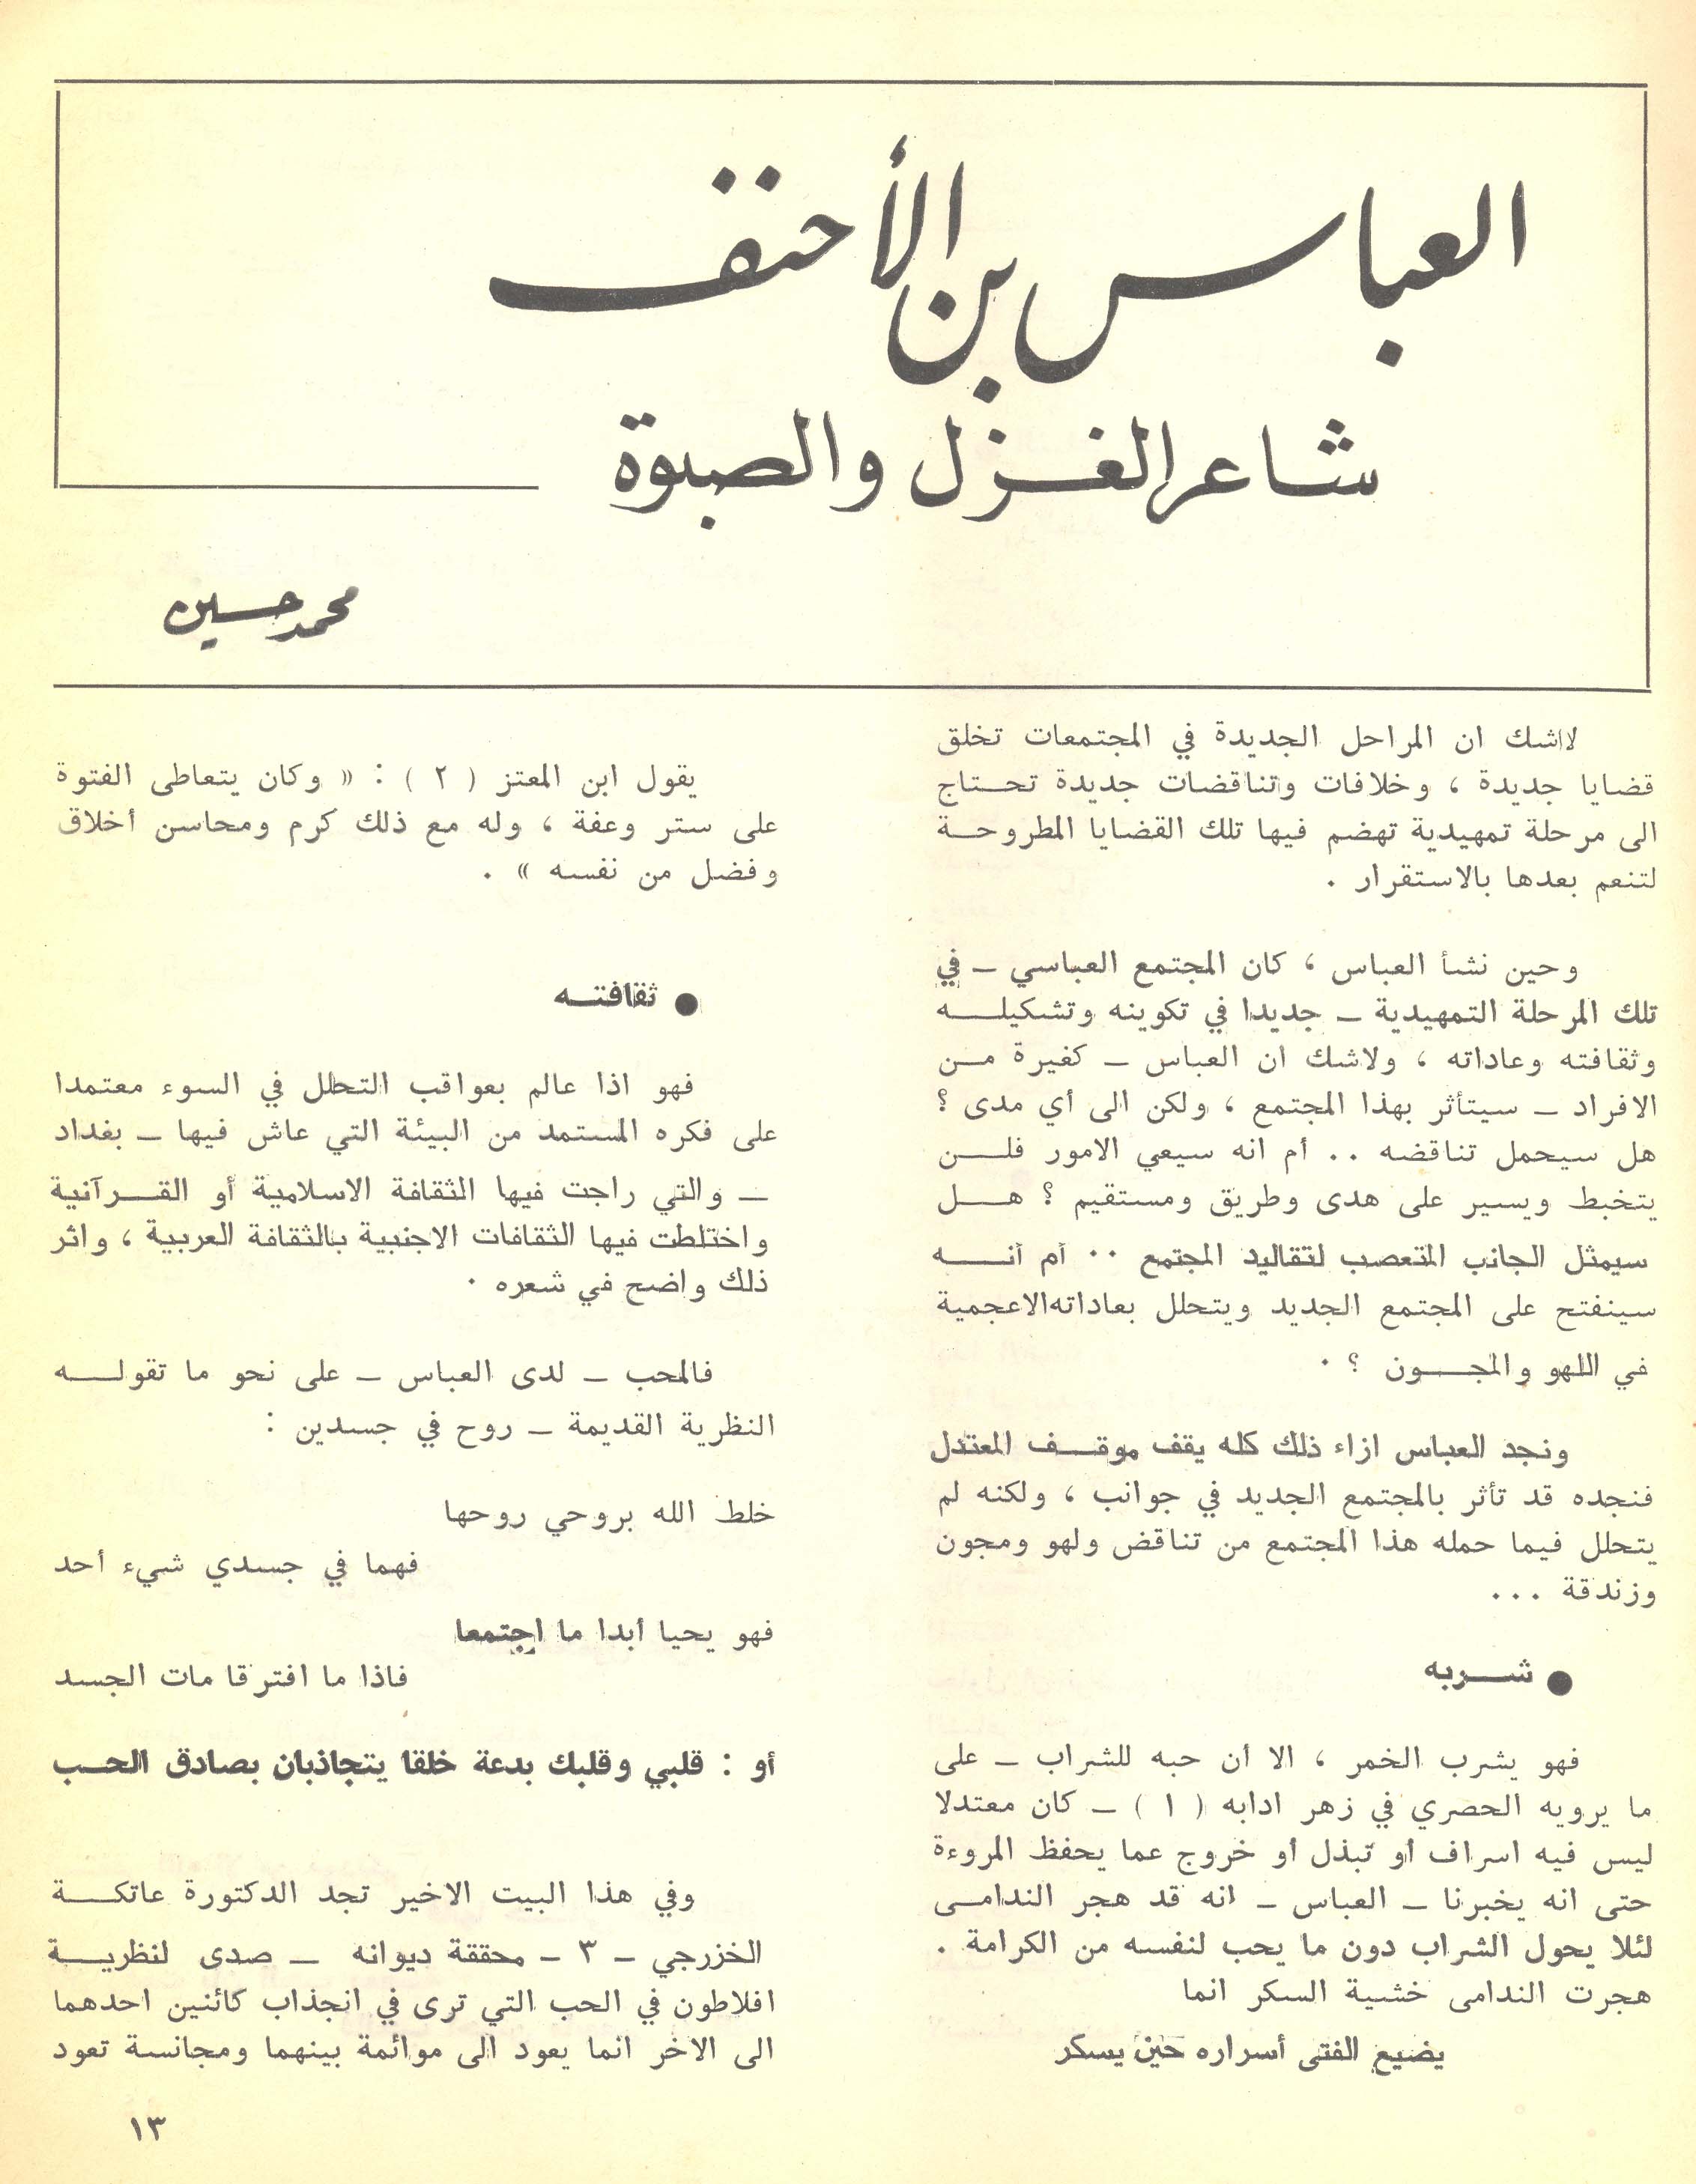 العباس بن الأحنف
شاعر الغزل والصبوة
محمد حسين
لاشك ان المراحل الجديدة في المجتمعات تخلق
قضايا جديدة ، وخلافات وتناقضات جديدة تحتاج
الى مرحلة تمهيدية تهضم فيها تلك القضايا المطروحة
لتنعم بعدها بالاستقرار .
وحين نشأ العباس ، كان المجتمع العباسي – في
تلك المرحلة التمهيدية – جديدا في تكوينه وتشكيله
وثقافته وعاداته ، ولاشك ان العباس – كغيرة من
الافراد – سيتأثر بهذا المجتمع ، ولكن الى أي مدى ؟
هل سيحمل تناقضه .. أم انه سيعي الامور فلن
يتخبط ويسير على هدى وطريق ومستقيم ؟ هل
سيمثل الجانب المتعصب لتقاليد المجتمع .. أم أنه
سينفتح على المجتمع الجديد ويتحلل بعاداته الاعجمية
في اللهو والمجون ؟ .
ونجد العباس ازاء ذلك كله يقف موقف المعتدل
فنجده قد تأثر بالمجتمع الجديد في جوانب ، ولكنه لم
يتحلل فيما حمله هذا المجتمع من تناقض ولهو ومجون
وزندقة ...
● شربه
فهو يشرب الخمر ، الا أن حبه للشراب – على
ما يرويه الحصري في زهر ادابه ( ١ ) – كان معتدلا
ليس فيه اسراف أو تبذل أو خروج عما يحفظ المروءة
حتى انه يخبرنا – العباس – انه قد هجر الندامى
لئلا يحول الشراب دون ما يحب لنفسه من الكرامة .
هجرت الندامى خشية السكر انما
يضيع الفتى أسراره حين يسكر
يقول ابن المعتز ( ٢ ) : « وكان يتعاطى الفتوة
على ستر وعفة ، وله مع ذلك كرم ومحاسن أخلاق
وفضل من نفسه » .
● ثقافته
فهو اذا عالم بعواقب التحلل في السوء معتمدا
على فكره المستمد من البيئة التي عاش فيها – بغداد
– والتي راجت فيها الثقافة الاسلامية أو القرآنية
واختلطت فيها الثقافات الاجنبية بالثقافة العربية ، واثر
ذلك واضح في شعره .
فالمحب – لدى العباس – على نحو ما تقوله
النظرية القديمة – روح في جسدين :
خلط الله بروحي روحها
فهما في جسدي شيء أحد
فهو يحيا أبدا ما اجتمعا
فاذا ما افترقا مات الجسد
أو : قلبي وقلبك بدعة خلقا يتجاذبان بصادق الحب
وفي هذا البيت الاخير تجد الدكتورة عاتكة
الخزرجي – ٣ – محققة ديوانه – صدى لنظرية
افلاطون في الحب التي ترى في انجذاب كائنين احدهما
الى الاخر انما يعود الى موائمة بينهما ومجانسة تعود
١٣